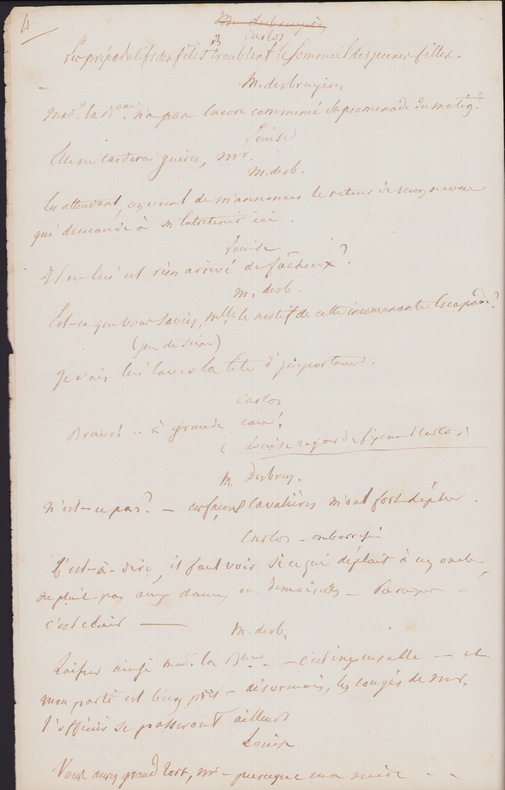 4
M. desbruyères
Carlos
Les préparatifs des fêtes troublent le sommeil des jeunes filles.
M. desbruyères
Mad. la n'a pas encore commencé sa promenade du matin?
Louise
Elle ne tardera guères, Mr.
M. desb.
En attendant, on vient de m'annoncer le retour de mon neveu
qui demande à m'entretenir ici.
Louise
Il ne lui est rien arrivé de fâcheux?
M. desb.
Est-ce que vous savez, Melle le motif de cette inconvenante escapade?
(jeu de scène)
Je vais lui laver la tête d'importance.
Carlos
Bravo! .. à grande eau!
( Louise regarde Carlos)
M. Desbruy.
n'est-ce pas? – ces façons cavalières m'ont fort déplu.
Carlos – embarrassé
C'est-à-dire, il faut voir si ce qui déplait à un oncle
déplait pas aux dames ou demoiselles –
c'est clair —
M. desb.
Laisser ainsi mad. la – c'est – et
mon parti est bien pris – désormais, les congés de Mr.
l'officier se passeront ailleurs
Louise
Vous aurez grand tort, Mr – puisque ma . .